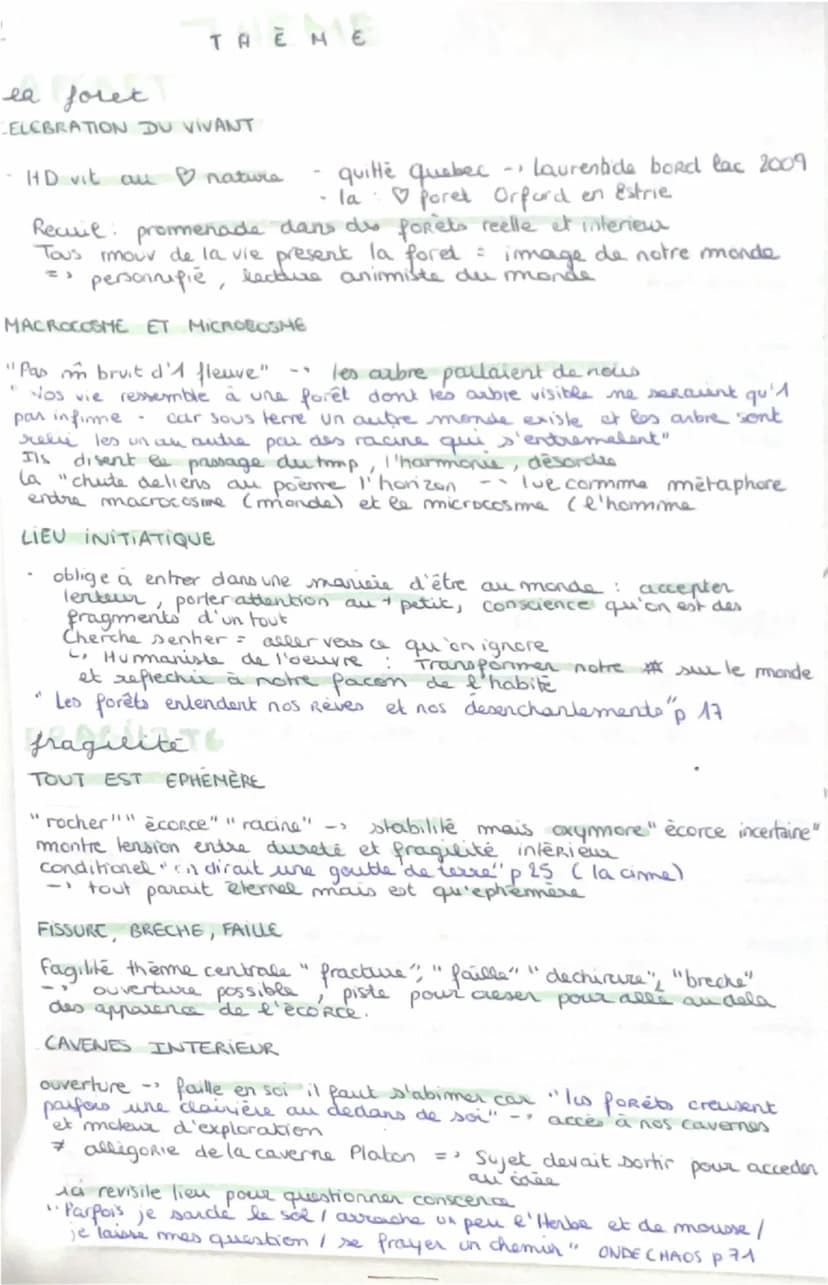 THÈME
la foret
CELEBRATION DU VIVANT
· HD vit au ♡ nature - quitté quebec -> Laurentide bord lac 2009
- la : ♡ foret Orford en Estrie
Recueil : promenade dans des forêts reelle et interieur
Tous mouv de la vie present la foret = image de notre monde
=> personnifié, lecture animiste du monde
MACROCOSME ET MICROCOSME
"Pas m̂ bruit d'1 fleuve" -> les arbre parlaient de nous
"Nos vie ressemble à une forêt dont les arbre visible ne seraient qu'1
par infirme - car sous terre un autre monde existe et les arbre sont
relié les un au autre par des racine qui s'entremelent"
Ils disent le passage du tmp, l'harmonie, désordre
la "chute de liens au poème l'horizon -> lue comme métaphore
entre macrocosme (monde) et le microcosme (l'homme
LIEU INITIATIQUE
· oblige à entrer dans une manière d'être au monde : accepter
lenteur, porter attention au + petit, conscience qu'on est des
fragments d'un tout
Cherche sentier = aller vers ce qu'on ignore
↳ Humaniste de l'oeuvre : Transformer notre sur le monde
et reflechir à notre facon de l'habité
"Les forêts entendent nos rêves et nos desenchantements" p 17
fragilité
TOUT EST EPHÉMÈRE
"rocher" "écorce" "racine" -> stabilité mais oxymore "écorce incertaine"
montre tension entre dureté et fragilité intérieur
conditionel "on dirait une goutte de terre" p 25 (la cime)
-> tout parait éternel mais est qu'ephémère
FISSURE, BRECHE, FAILLE
fagilité thème centrale "fracture", "faille" "dechirure", "breche"
-> ouverture possible, piste pour creser pour allé au dela
des apparence de l'écorce.
CAVENES INTERIEUR
ouverture -> faille en soi il faut s'abimer car "les forêts creusent
parfois une clairière au dedans de soi" -> accès à nos cavernes
et moteur d'exploration
≠ allégorie de la caverne Platon => Sujet devait sortir pour acceder
au idée
ici revisite lieu pour questionner conscence
"Parfois je sonde le sol / arrache un peu l'Herbe et de mousse /
je laisse mes question / se frayer un chemin" ONDE CHAOS p 71